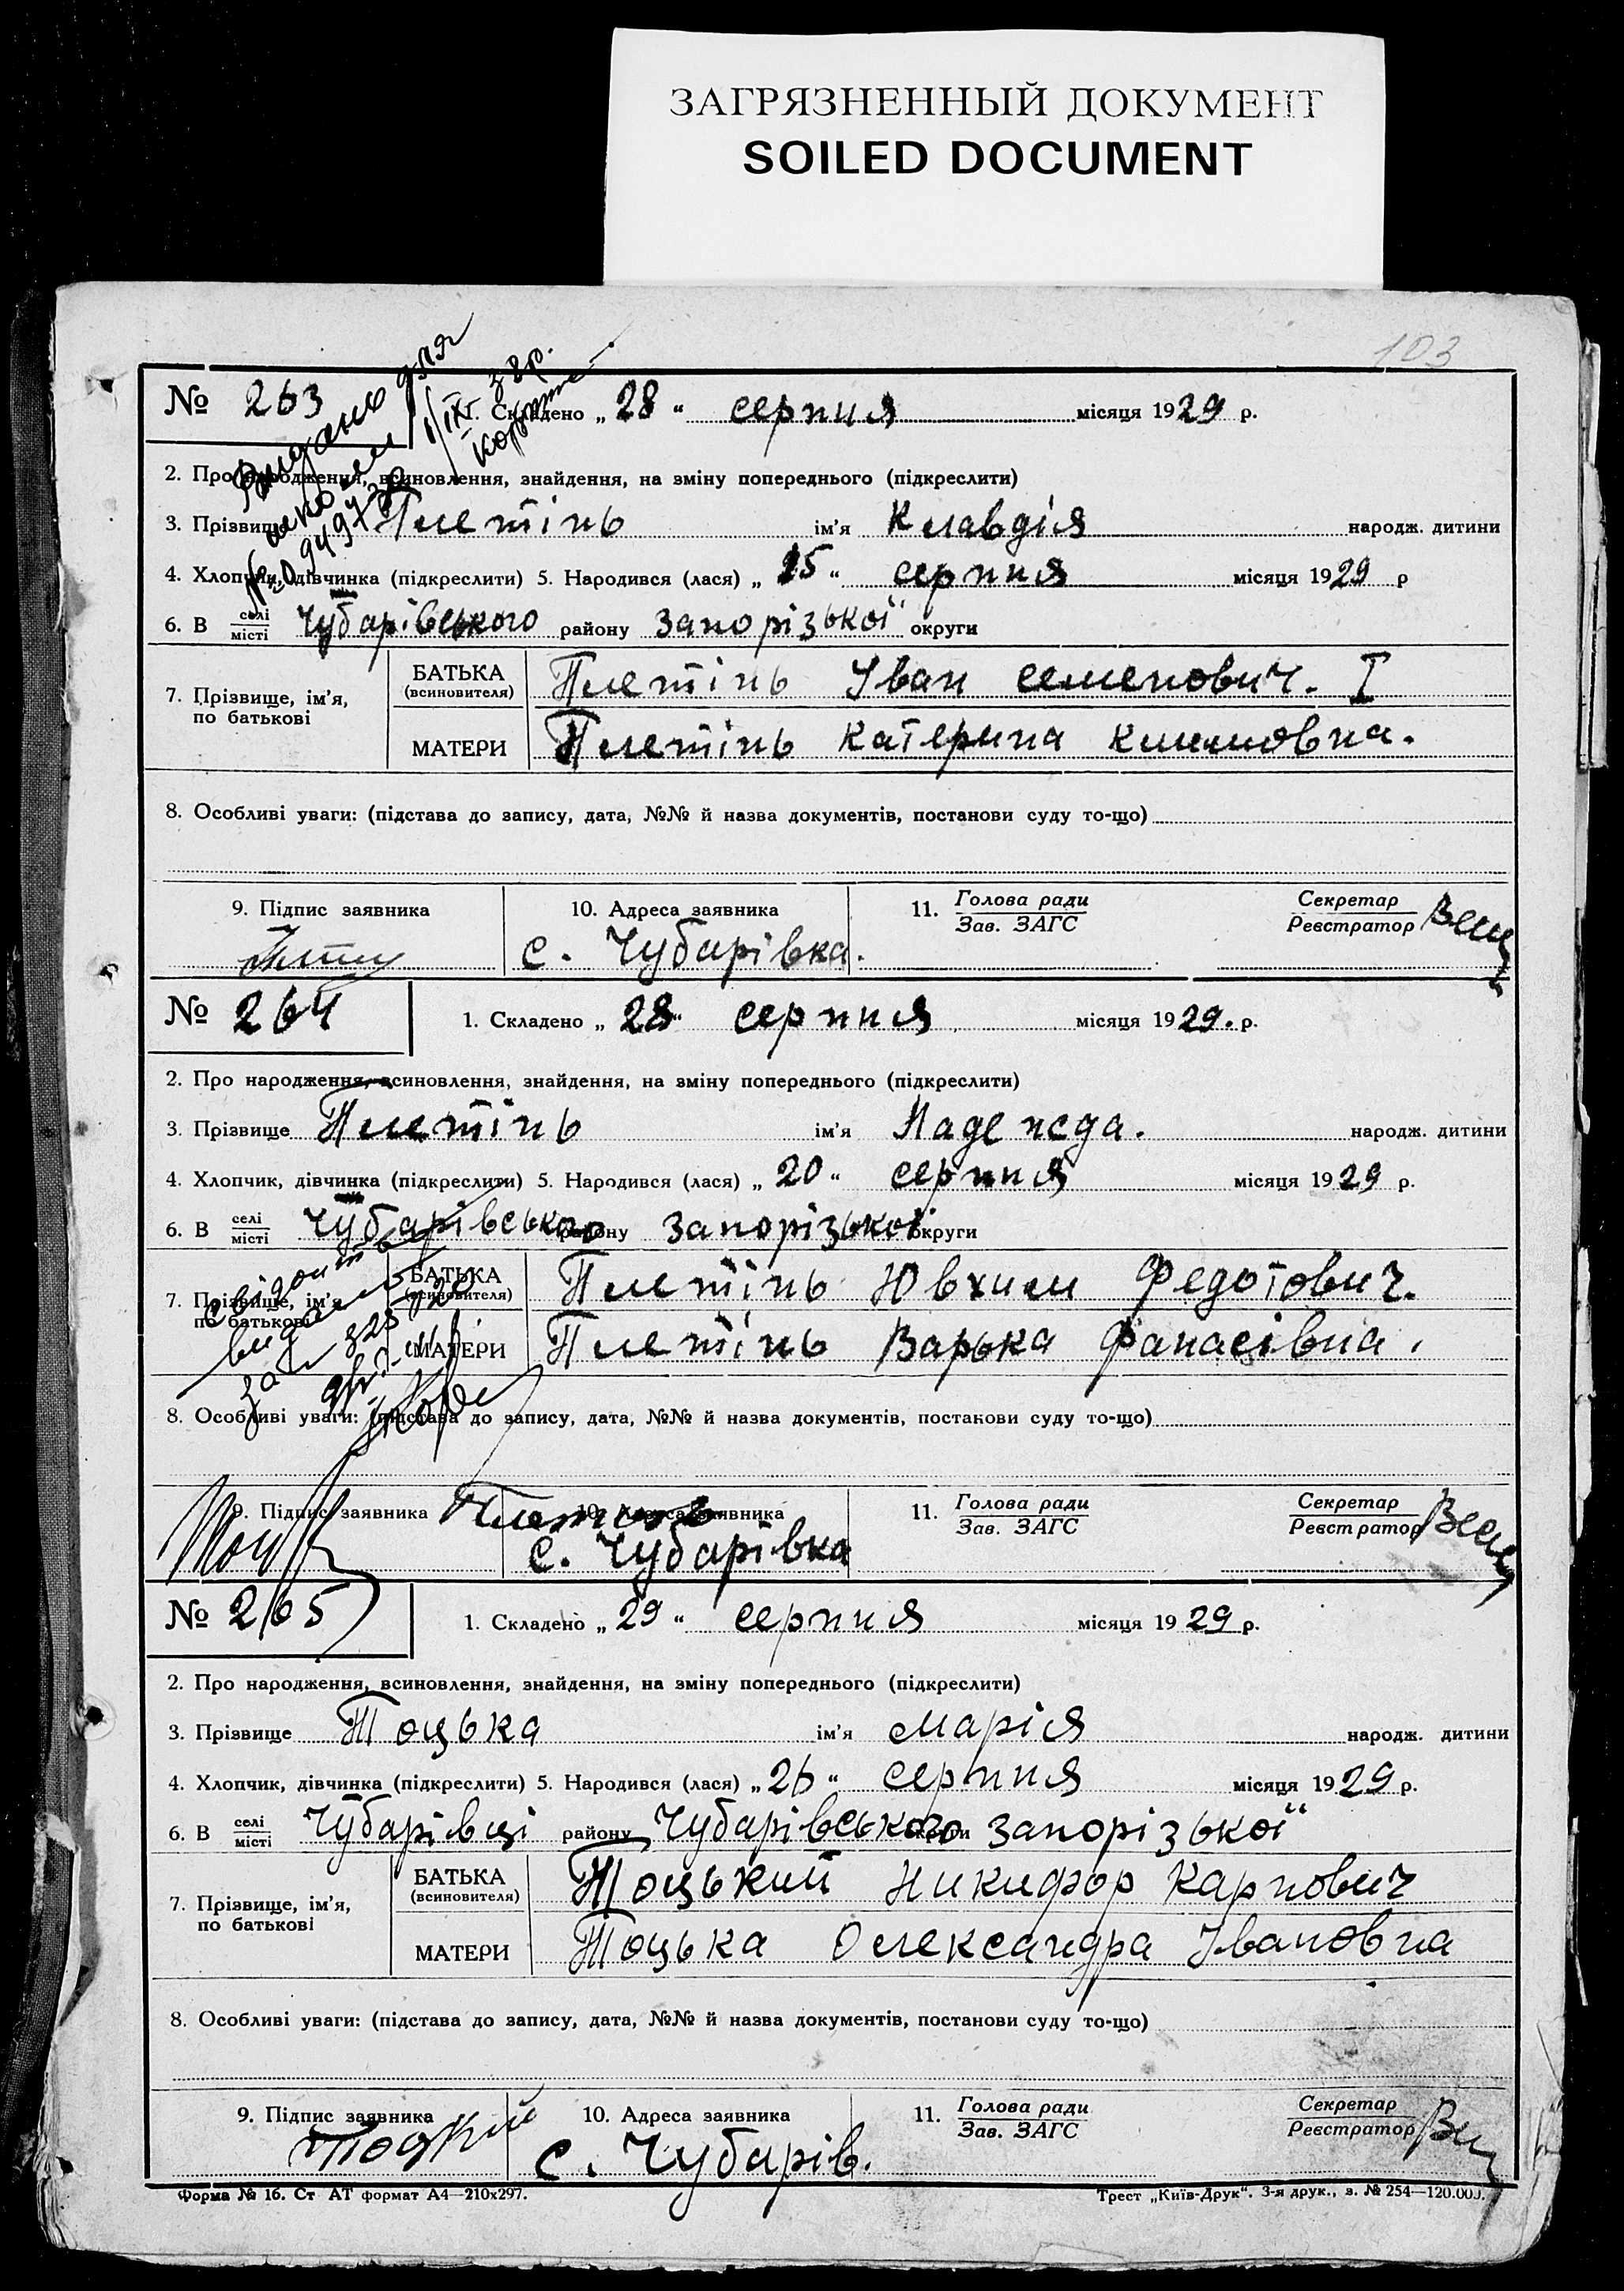 ЗАГРЯЗНЕННЫЙ ДОКУМЕНТ
SOILED DOCUMENT
103
№ 263
1. Складено „ 28 “ серпня місяця 1929 р.
Видано для
школи
1/IX 38 р.
2. Про народження, всиновлення, знайдення, на зміну попереднього (підкреслити)
3. Прізвище Плетінь ім’я Клавдія народж. дитини
4. Хлопчик, дівчинка (підкреслити) 5. Народився (лася) „ 15 “ серпня місяця 1929 р
6. В селі місті Чубарівського району Запорізької округи
7. Прізвище, ім’я, по батькові
БАТЬКА (всиновителя) Плетінь Іван Семенович. I
МАТЕРИ Плетінь Катерина Климовна.
8. Особливі уваги: (підстава до запису, дата, №№ й назва документів, постанови суду то-що)
9. Підпис заявника 10. Адреса заявника 11. Голова ради Зав. ЗАГС Секретар Реєстратор
с. Чубарівка.
№ 264
1. Складено „ 28 “ серпня місяця 1929. р.
2. Про народження, всиновлення, знайдення, на зміну попереднього (підкреслити)
3. Прізвище Плетінь ім’я Надежда. народж. дитини
4. Хлопчик, дівчинка (підкреслити) 5. Народився (лася) „ 20 “ серпня місяця 1929 р.
6. В селі місті Чубарівського району Запорізької округи
7. Прізвище, ім’я, по батькові
БАТЬКА (всиновителя) Плетінь Ювхим Федотович.
МАТЕРИ Плетінь Варька Фанасівна.
8. Особливі уваги: (підстава до запису, дата, №№ й назва документів, постанови суду то-що)
9. Підпис заявника 10. Адреса заявника 11. Голова ради Зав. ЗАГС Секретар Реєстратор
Плетінь
с. Чубарівка
№ 265
1. Складено „ 29 “ серпня місяця 1929 р.
2. Про народження, всиновлення, знайдення, на зміну попереднього (підкреслити)
3. Прізвище Тоцька ім’я Марія народж. дитини
4. Хлопчик, дівчинка (підкреслити) 5. Народився (лася) „ 26 “ серпня місяця 1929 р.
6. В селі місті Чубарівці району Чубарівського округи Запорізької
7. Прізвище, ім’я, по батькові
БАТЬКА (всиновителя) Тоцький Никифор Карпович
МАТЕРИ Тоцька Олександра Івановна
8. Особливі уваги: (підстава до запису, дата, №№ й назва документів, постанови суду то-що)
9. Підпис заявника 10. Адреса заявника 11. Голова ради Зав. ЗАГС Секретар Реєстратор
Тоцкий с. Чубарів.
Форма № 16. Ст АТ формат А4—210x297.
Трест „Київ-Друк“. 3-я друк., з. № 254—120.000.